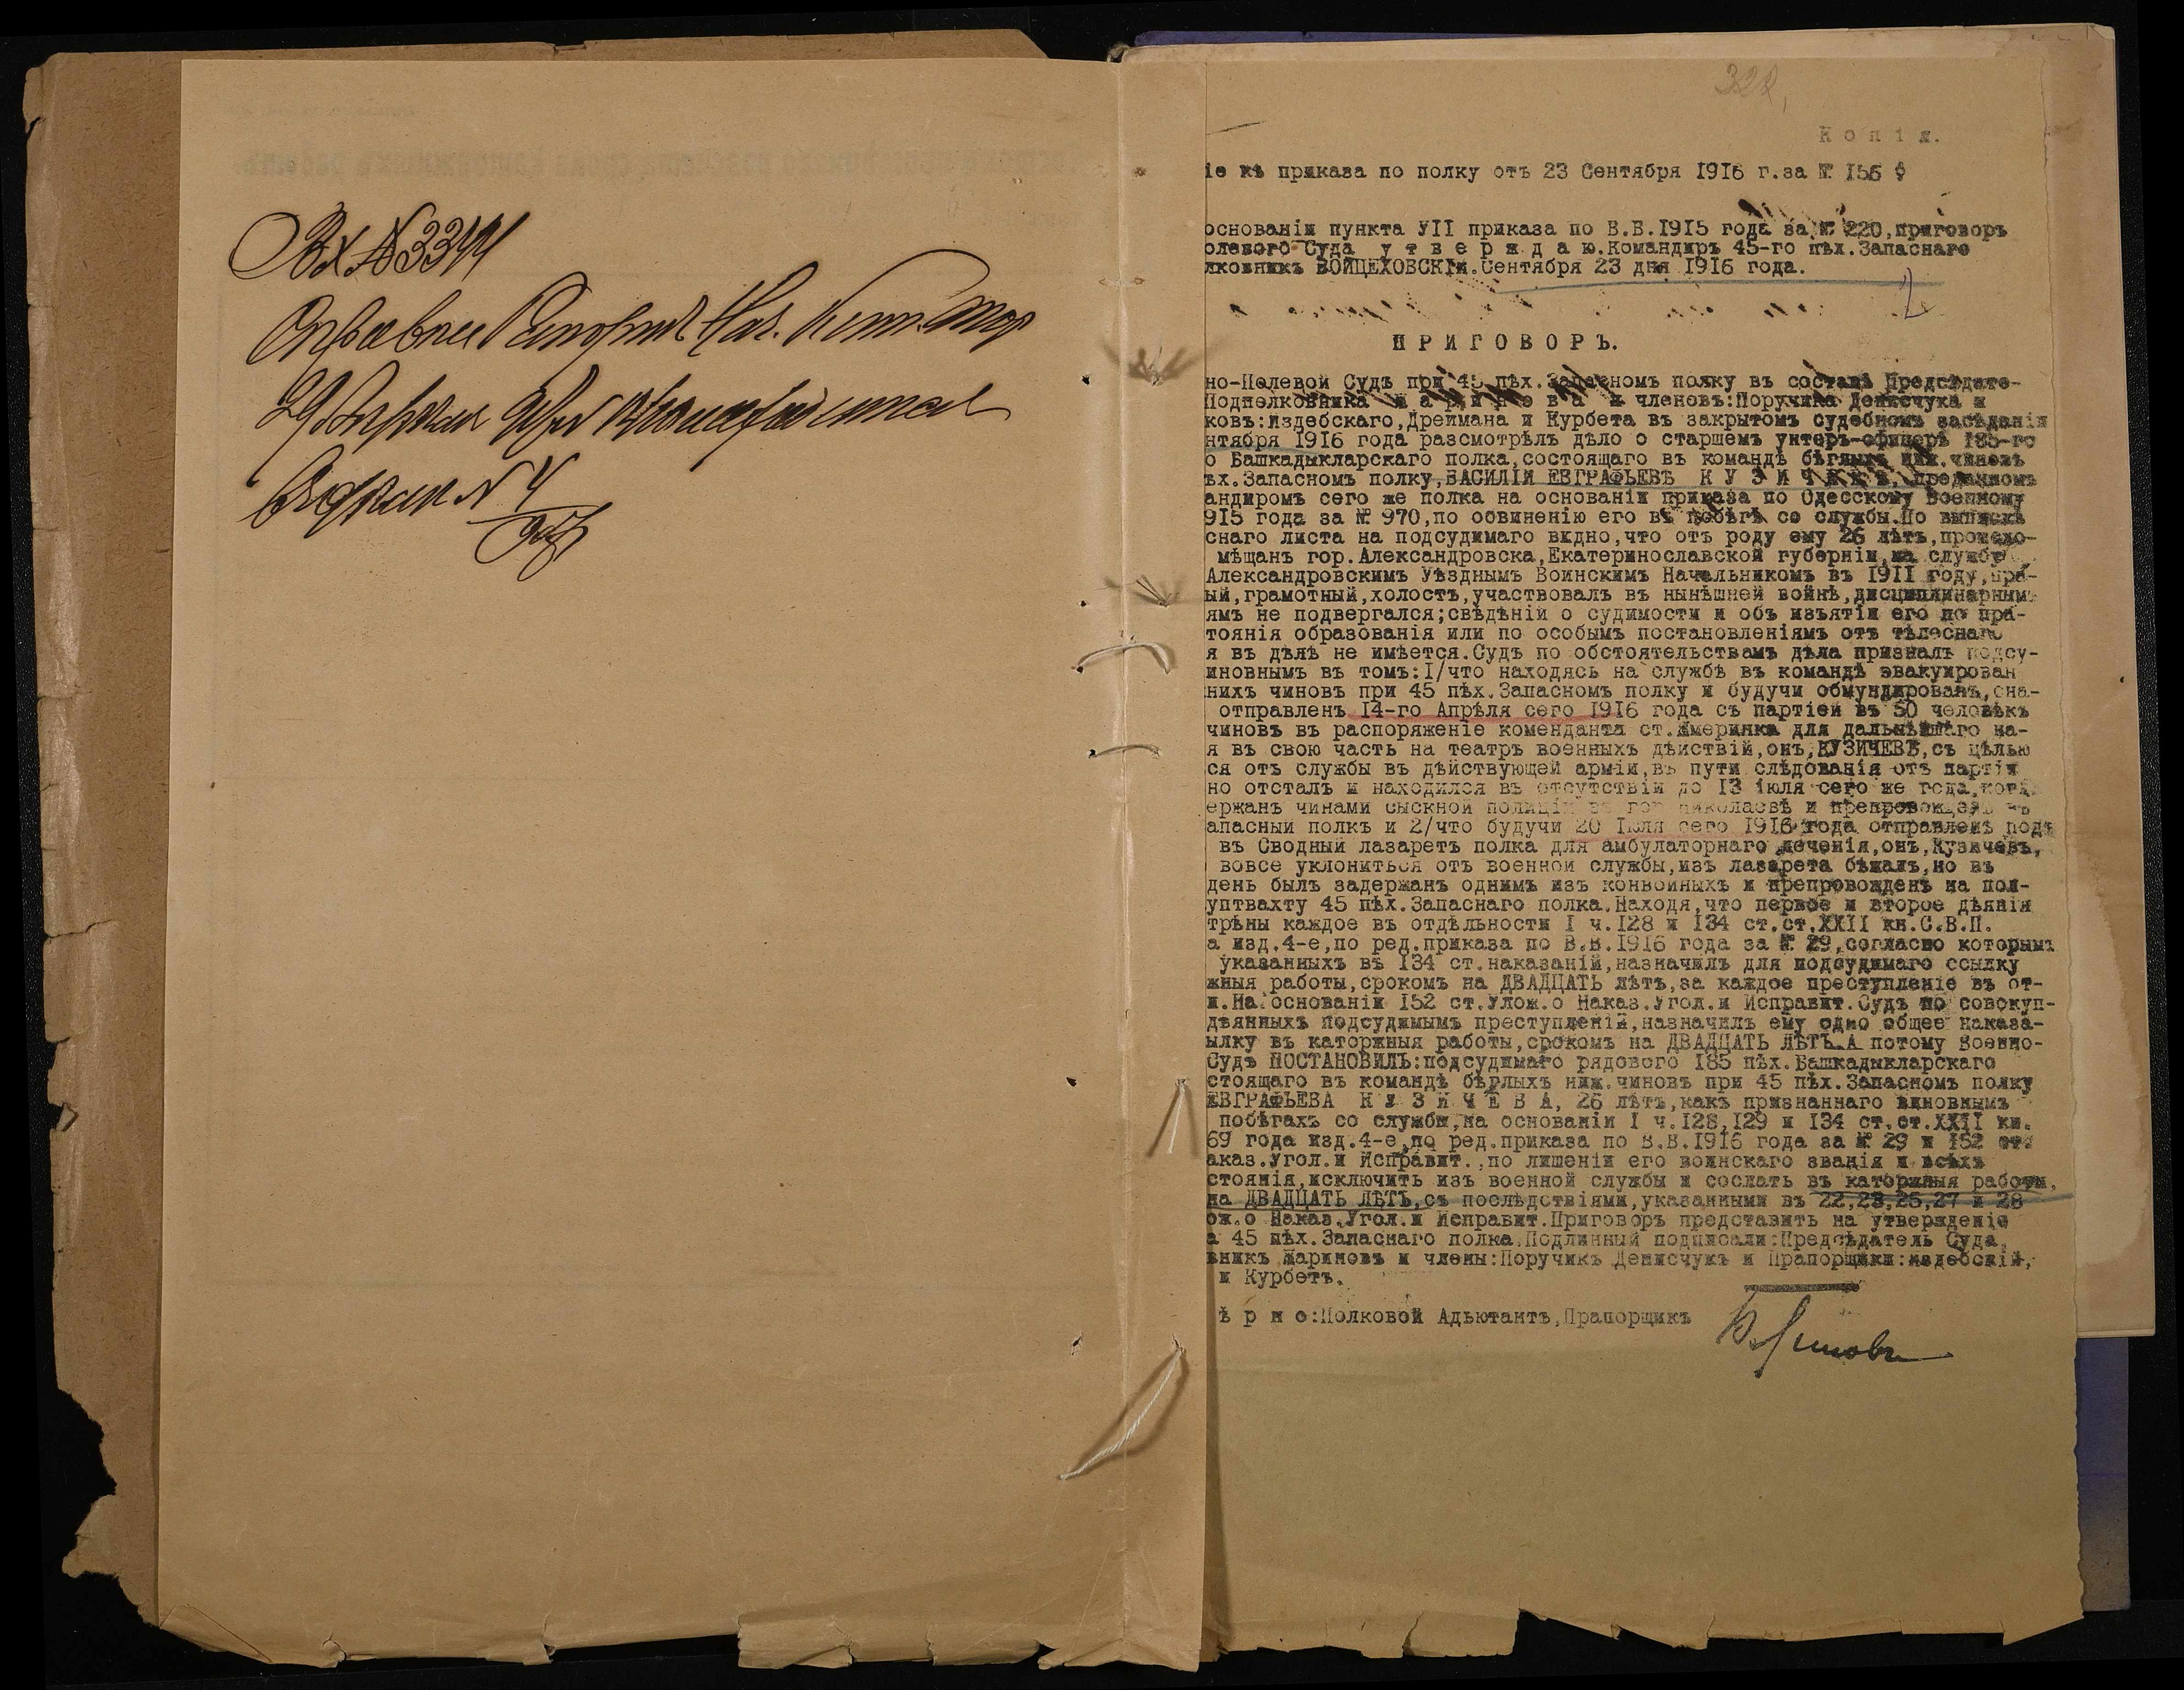 Вх №3344
322
Копія.
іе къ приказа по полку отъ 23 Сентября 1916 г.за № 156
основаніи пункта УІІ приказа по В.В.1915 года за № 220,приговоръ
олевого Суда у т в е р ж д а ю.Командиръ 45-го пѣх.Запаснаго
лковникъ ВОЙЦЕХОВСКІй.Сентября 23 дня 1916 года.
П Р И Г О В О Р Ъ.
но-Полевой Судъ при 45 пѣх.Запасномъ полку въ составѣ Предсѣдате-
Подполковника М а р и н о в а и членовъ:Поручика Денисчука и
ковъ:Издебскаго,Дреймана и Курбета въ закрытомъ судебномъ засѣданіи
нтября 1916 года разсмотрѣлъ дѣло о старшемъ унтеръ-офицерѣ 185-го
о Башкадыкларскаго полка,состоящаго въ командѣ бѣглыхъ ниж.чиновъ
ѣх.Запасномъ полку,ВАСИЛІИ ЕВГРАФЬЕВѢ К У З И Ч Е В Ѣ, преданномъ
андиромъ сего же полка на основаніи приказа по Одесскому Военному
915 года за № 970,по обвиненію его въ побѣгѣ со службы.По выпискѣ
снаго листа на подсудимаго видно,что отъ роду ему 26 лѣтъ,происхо-
мѣщанъ гор.Александровска,Екатеринославской губерніи,на службу
Александровскимъ Уѣзднымъ Воинскимъ Начальникомъ въ 1911 году,пра-
ый,грамотный,холостъ,участвовалъ въ нынѣшней войнѣ,дисциплинарнымъ
ямъ не подвергался;свѣдѣній о судимости и объ изъятіи его по пра-
тоянія образованія или по особымъ постановленіямъ отъ тѣлеснаго
я въ дѣлѣ не имѣется.Судъ по обстоятельствамъ дѣла призналъ подсу-
иновнымъ въ томъ:І/что находясь на службѣ въ командѣ эвакуирован
нихъ чиновъ при 45 пѣх.Запасномъ полку и будучи обмундированъ,сна-
отправленъ 14-го Апрѣля сего 1916 года съ партіей въ 50 человѣкъ
чиновъ въ распоряженіе коменданта ст.Жмеринка для дальнѣйшаго на-
я въ свою часть на театръ военныхъ дѣйствій,онъ,КУЗИЧЕВЪ,съ цѣлью
ся отъ службы въ дѣйствующей арміи,въ пути слѣдованія отъ партіи
но отсталъ и находился въ отсутствіи до 13 іюля сего же года,когда
ержанъ чинами сыскной полиціи въ гор николаевѣ и препровожденъ въ
апасный полкъ и 2/что будучи 20 Іюля сего 1916 года отправленъ подъ
въ Сводный лазаретъ полка для амбулаторнаго леченія,онъ,Кузичевъ,
вовсе уклониться отъ военной службы,изъ лазарета бѣжалъ,но въ
день былъ задержанъ однимъ изъ конвойныхъ и препровожденъ на пол-
уптвахту 45 пѣх.Запаснаго полка.Находя,что первое и второе дѣянія
трѣны каждое въ отдѣльности І ч.128 и 134 ст.ст.XXII кн.С.В.П.
а изд.4-е,по ред.приказа по В.В.1916 года за № 29,согласно которымъ
указанныхъ въ 134 ст.наказаній,назначилъ для подсудимаго ссылку
жныя работы,срокомъ на ДВАДЦАТЬ лѣтъ,за каждое преступленіе въ от-
и.На основаніи 152 ст.Улож.о Наказ.Угол.и Исправит.Судъ по совокуп-
дѣянныхъ подсудимымъ преступленій,назначилъ ему одно общее наказа-
ылку въ каторжныя работы,срокомъ на ДВАДЦАТЬ ЛѢТЪ.А потому Военно-
Судъ ПОСТАНОВИЛЪ:подсудимаго рядового 185 пѣх.Башкадыкларскаго
стоящаго въ командѣ бѣглыхъ ниж.чиновъ при 45 пѣх.Запасномъ полку
ЕВГРАФЬЕВА К У З И Ч Е В А, 26 лѣтъ,какъ признаннаго виновнымъ
побѣгахъ со службы,на основаніи І ч.128,129 и 134 ст.ст.XXII кн.
69 года изд.4-е,по ред.приказа по В.В.1916 года за № 29 и 152 ст.
аказ.Угол.и Исправит.,по лишеніи его воинскаго званія и всѣхъ
стоянія,исключить изъ военной службы и сослать въ каторжныя работы,
на ДВАДЦАТЬ ЛѢТЪ,съ послѣдствіями,указанными въ 22,23,25,27 и 28
ож.о Наказ.Угол.и Исправит.Приговоръ представить на утвержденіе
а 45 пѣх.Запаснаго полка.Подлинный подписали:Предсѣдатель Суда,
вникъ Мариновъ и члены:Поручикъ Денисчукъ и Прапорщики:Издебскій,
и Курбетъ.
ѣ р н о:Полковой Адьютантъ,Прапорщикъ